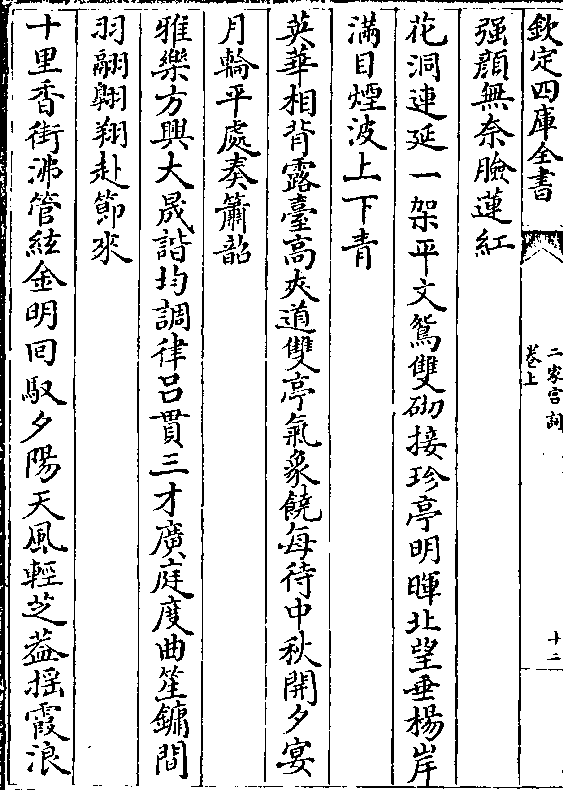 欽定四庫全書
二家宫詞
卷上
十二
强顔無奈臉蓮紅
花洞連延一架平文鴛雙砌接珍亭明暉北望垂楊岸
滿目煙波上下青
英華相背露臺高夾道雙亭氣象饒每待中秋開夕宴
月輪平處奏簫韶
雅樂方興大晟諧均調律吕貫三才廣庭度曲笙鏞間
羽翮翺翔赴節來
十里香街沸管絃金明回馭夕陽天風輕芝葢揺霞浪